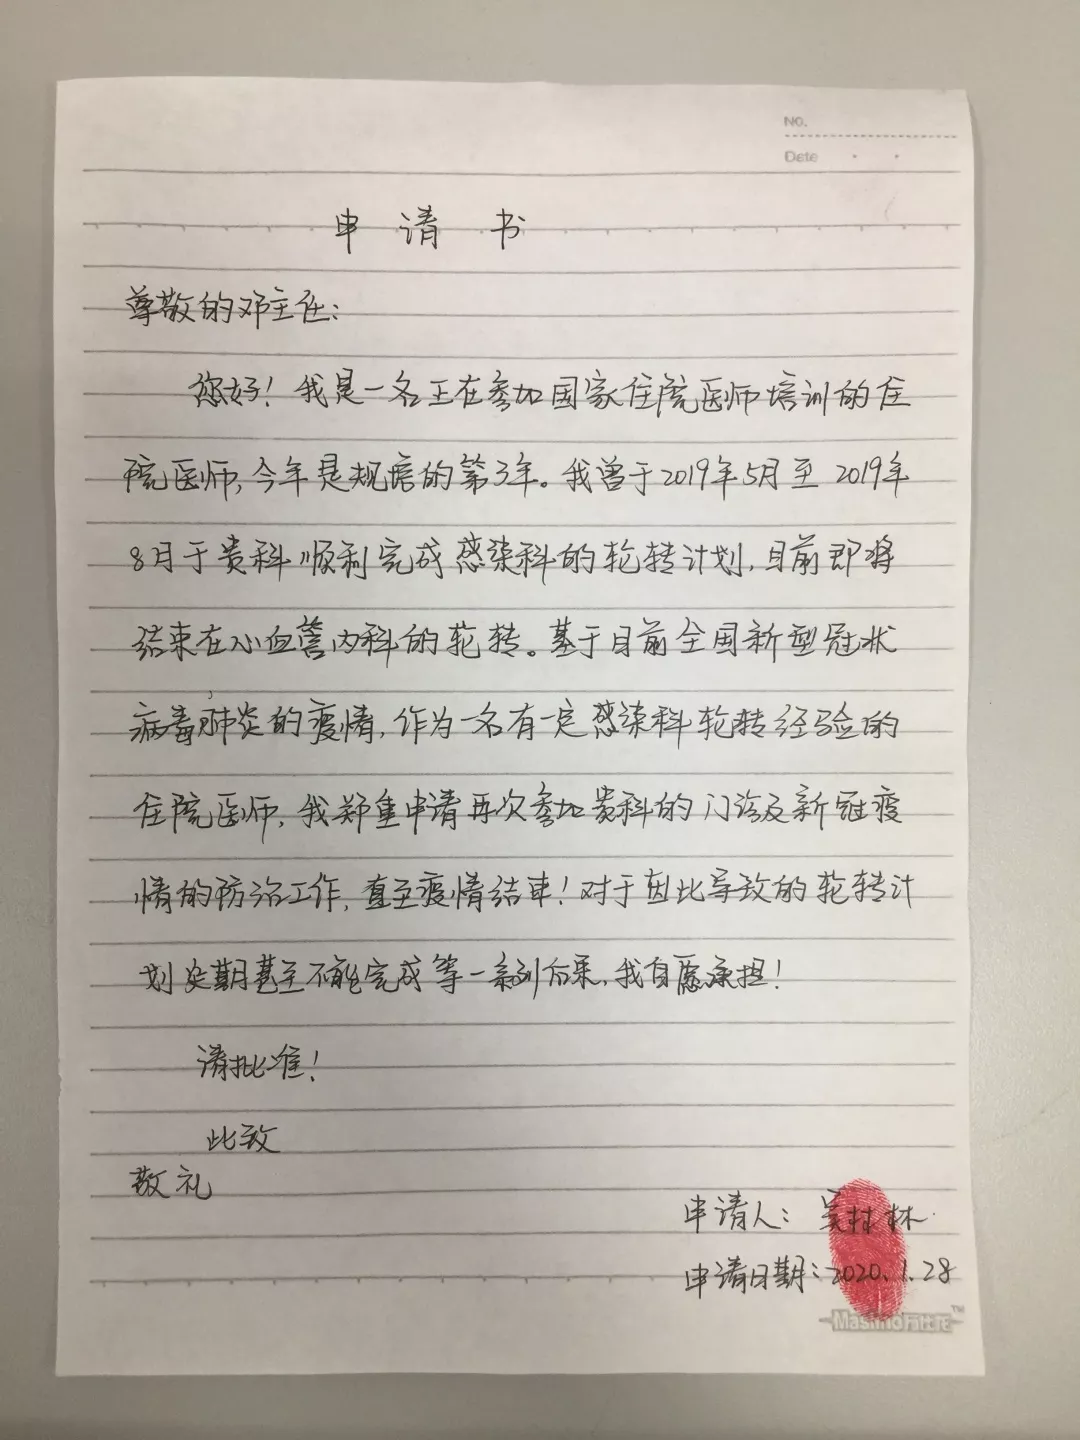 NO.
Date
申请书
尊敬的邓主任：
您好！我是一名正在参加国家住院医师培训的住
院医师，今年是规培的第3年。我曾于2019年5月至2019年
8月于贵科顺利完成感染科的轮转计划，目前即将
结束在心血管内科的轮转。基于目前全国新型冠状
病毒肺炎的疫情，作为一名有一定感染科轮转经验的
住院医师，我郑重申请再次参加贵科的门诊及新冠疫
情的防治工作，直至疫情结束！对于因此导致的轮转计
划延期甚至不能完成等一系列后果，我自愿承担！
请批准！
此致
敬礼
申请人：吴村林
申请日期：2020.1.28
Maslino玛仕龙